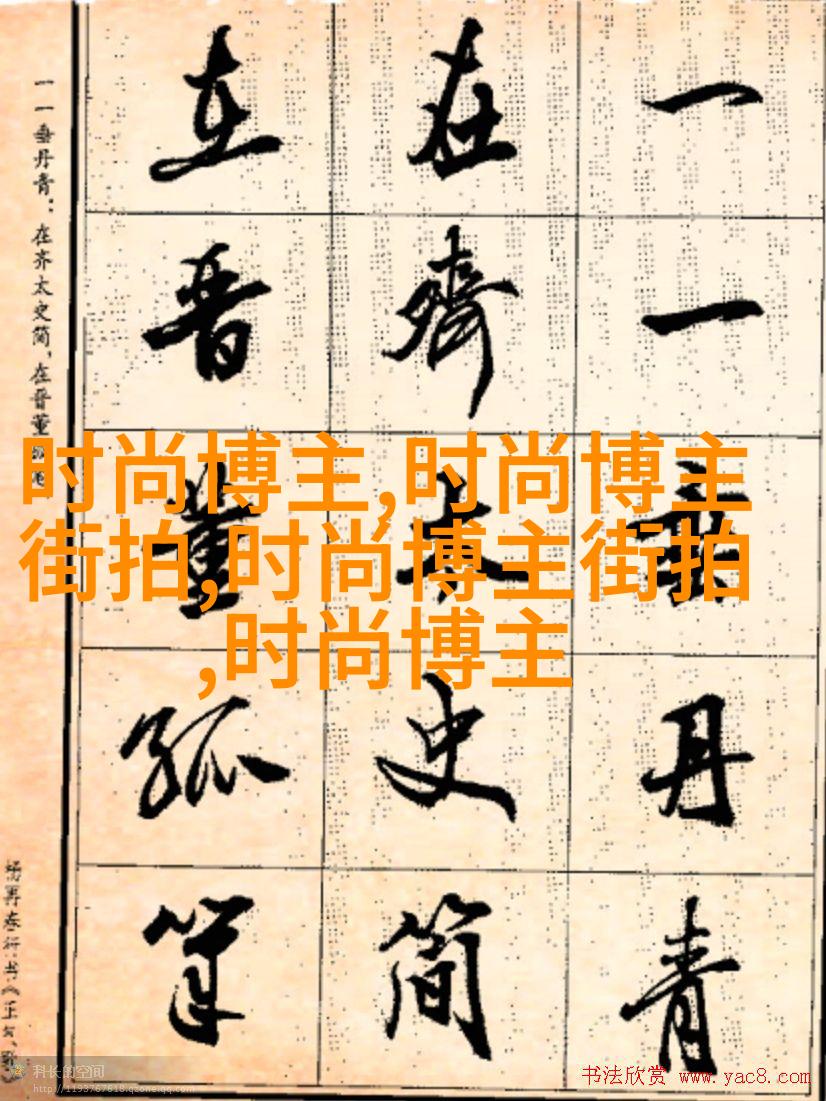 一一垂丹青
在齐太史简
在晋董狐笔
一一垂丹青：在齐太史简，在晋董狐笔
时尚博主,时尚博主
街拍,时尚博主街拍
,时尚博主
科长的空间
http://1193767618.qzone.qq.com
书法欣赏 www.yac8.com